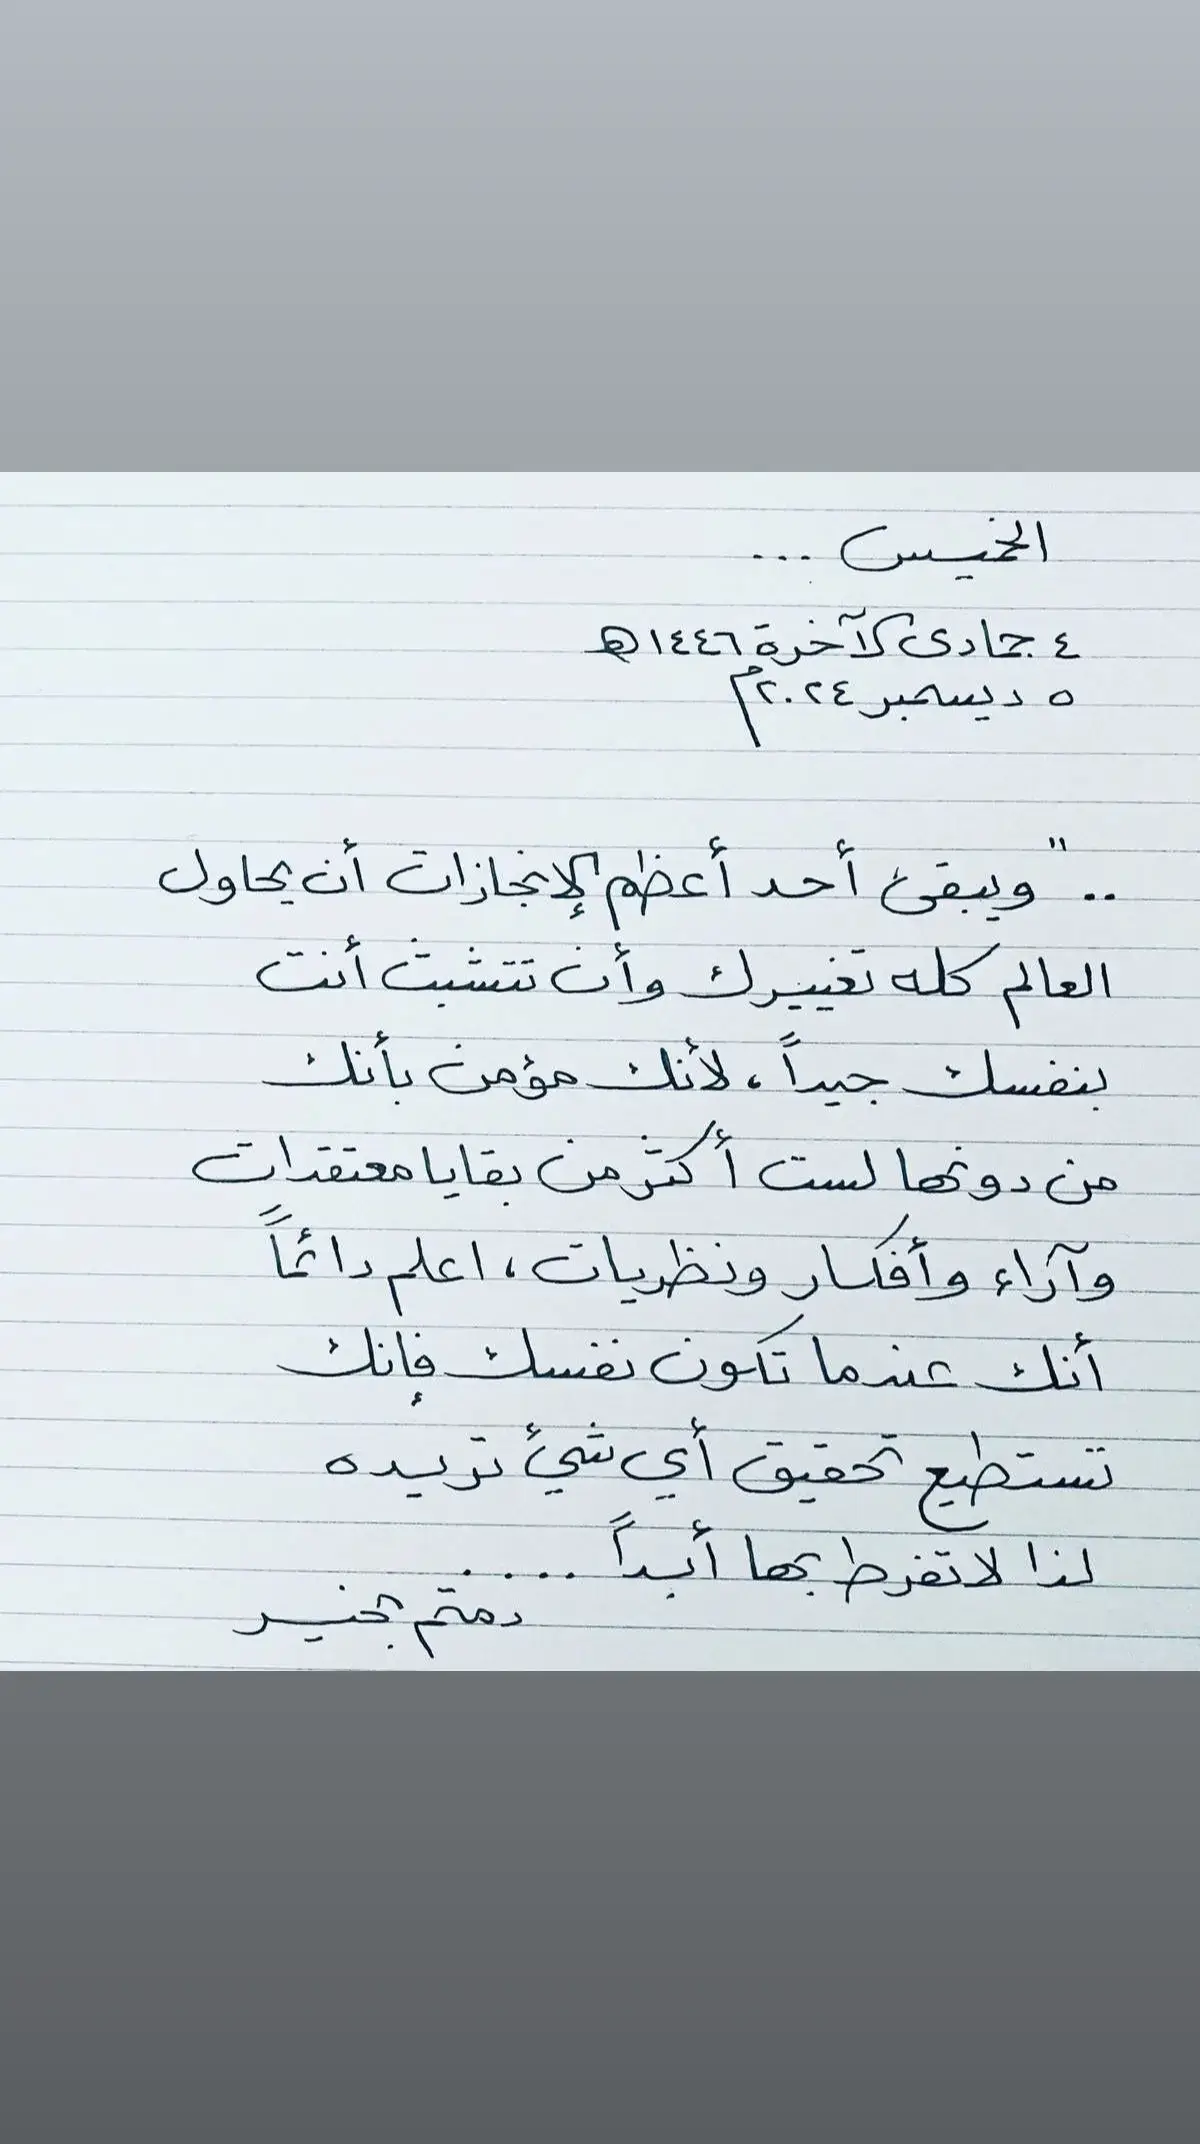 الخميس ...
٤ جمادى الآخرة ١٤٤٦هـ
٥ ديسمبر ٢٠٢٤م
.. " ويبقى أحد أعظم الإنجازات أن يحاول
العالم كله تغييرك وأن تتشبث أنت
بنفسك جيداً ، لأنك مؤمن بأنك
من دونها لست أكثر من بقايا معتقدات
وآراء وأفكار ونظريات ، اعلم دائماً
أنك عندما تكون نفسك فإنك
تستطيع تحقيق أي شيئ تريده
لذا لا تفرط بها أبداً .....
دمتم بخير